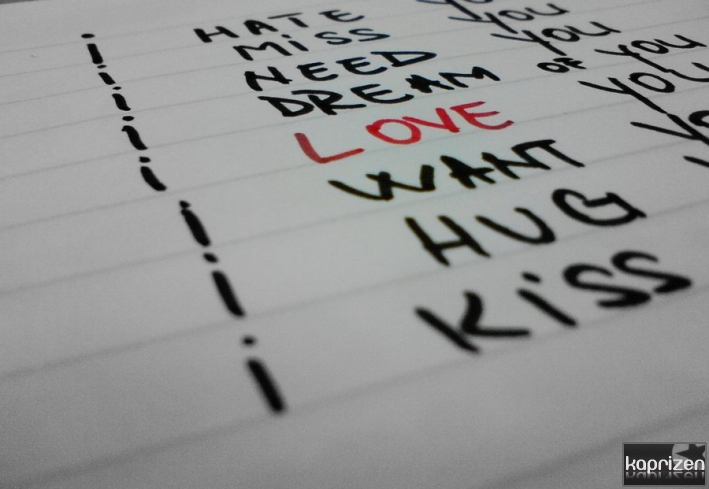 i HATE YOU
i MiSS YOU
i NEED YOU
i DREAM OF YOU
i LOVE YOU
i WANT YO
i HUG
i KiSS
kaprizen